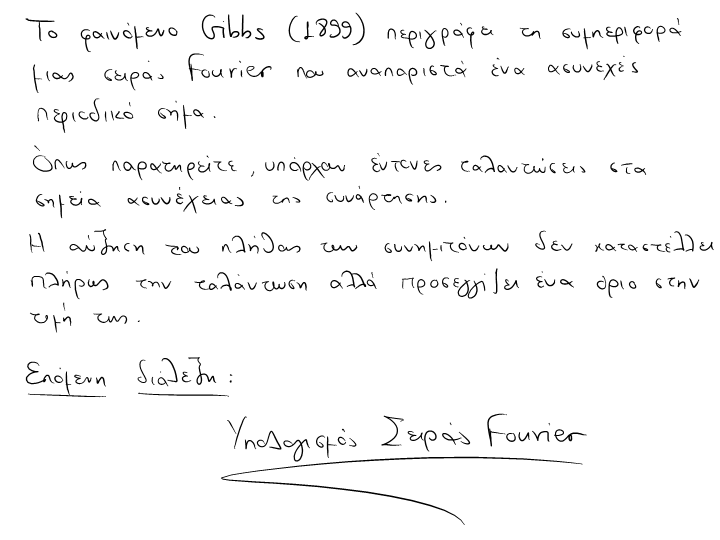 Το φαινόμενο Gibbs (1899) περιγράφει τη συμπεριφορά
μιας σειράς Fourier που αναπαριστά ένα ασυνεχές
περιοδικό σήμα.
Όπως παρατηρείτε, υπάρχουν έντονες ταλαντώσεις στα
σημεία ασυνέχειας της συνάρτησης.
Η αύξηση του πλήθους των συνημιτόνων δεν καταστέλλει
πλήρως την ταλάντωση αλλά προσεγγίζει ένα όριο στην
τιμή της.
Επόμενη διάλεξη:
Υπολογισμός Σειράς Fourier